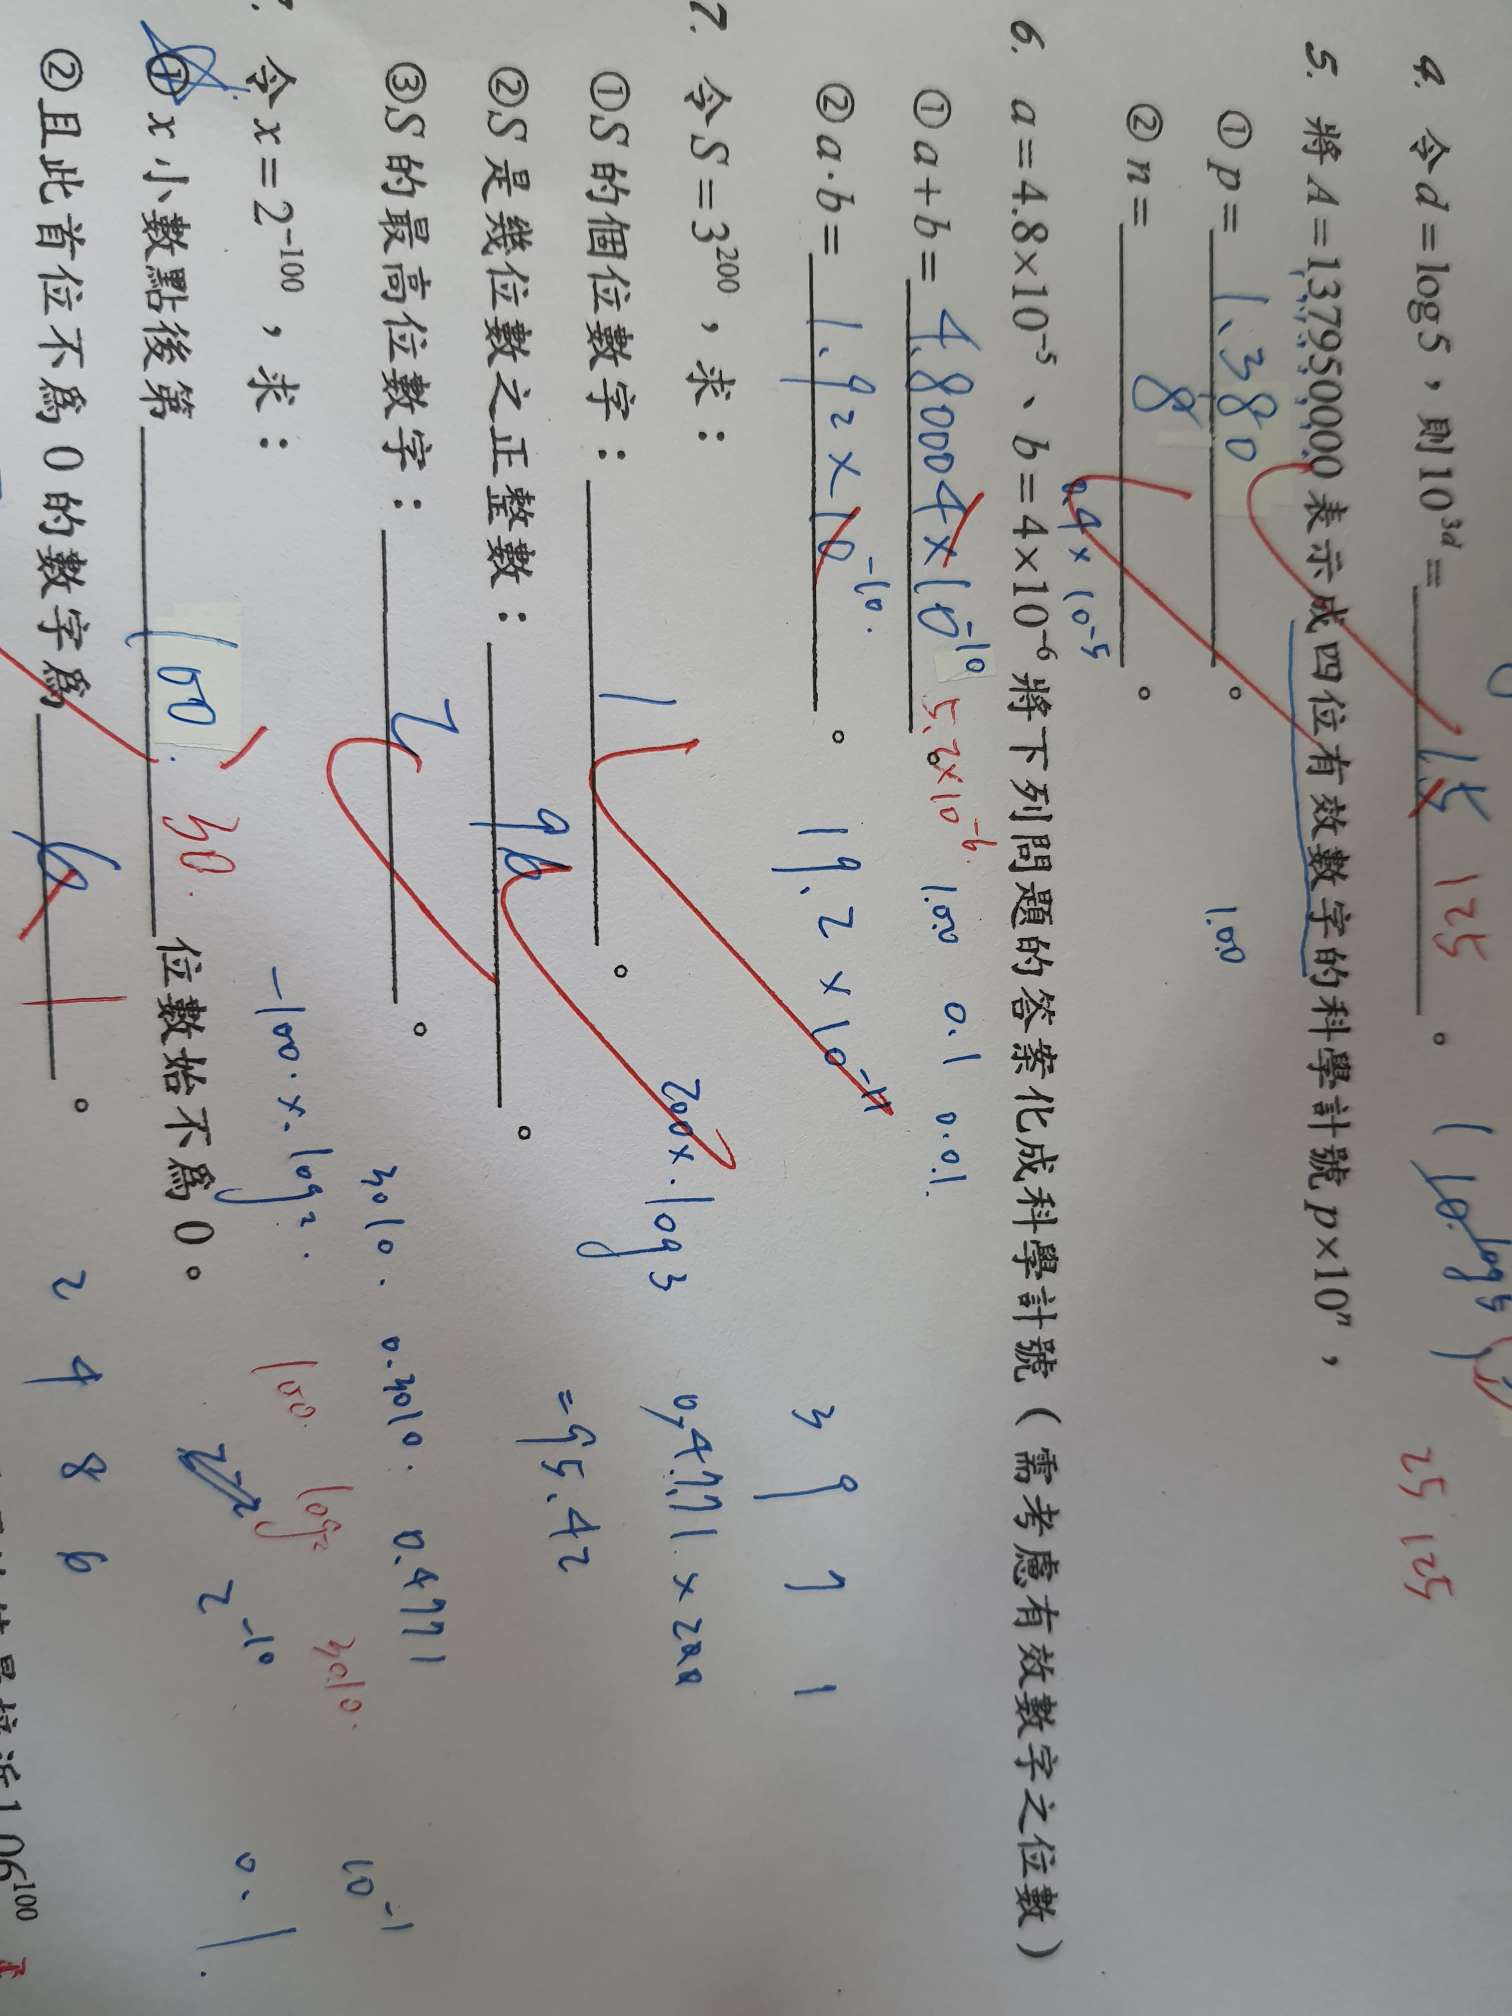 4. 令 d=log5，則10^{3d}= 15 。 125
(10^{log5})
25 125
5. 將 A=137950000 表示成四位有效數字的科學計號 p×10^n，
①p= 1.380 。 1.00
②n= 8 。
0.4×10^{-5}
6. a=4.8×10^{-5}、b=4×10^{-6} 將下列問題的答案化成科學計號（需考慮有效數字之位數）
①a+b= 4.80004×10^{-10} 。 5.2×10^{-6} 1.00 0.1 0.01
②a·b= 1.92×10^{-10} 。 19.2×10^{-11} 3 9 7 1
7. 令 S=3^{200}，求：
200×log3 0.4771×200
①S的個位數字： 1 。
=95.42
②S是幾位數之正整數： 96 。
③S的最高位數字： 2 。
3010. 0.3010. 0.4771
令 x=2^{-100}，求：
-100.×.log2. 100. log2 3010. 10^{-1}
①x 小數點後第 100. 30. 位數始不為0。
2^{-10} 0.1
②且此首位不為0的數字為 6 。 1
2 4 8 6
106^{100}